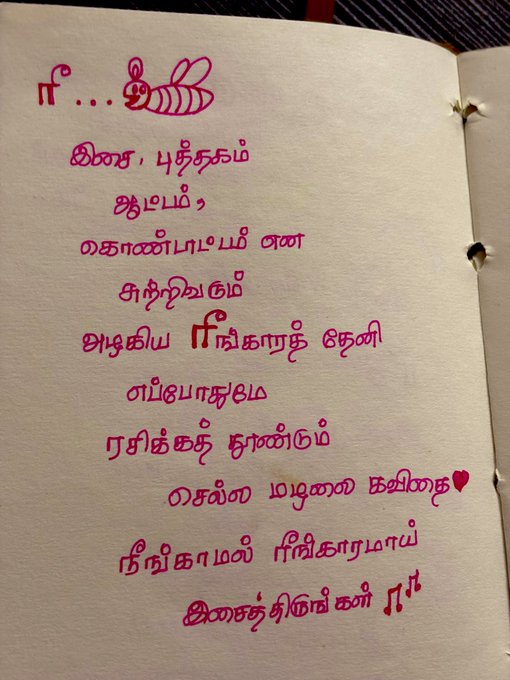 ரீ...
இசை, புத்தகம்
ஆட்டம்,
கொண்டாட்டம் என
சுற்றிவரும்
அழகிய ரீங்காரத் தேனி
எப்போதுமே
ரசிக்கத் தூண்டும்
செல்ல மழலை கவிதை
நீங்காமல் ரீங்காரமாய்
இசைத்திருங்கள்